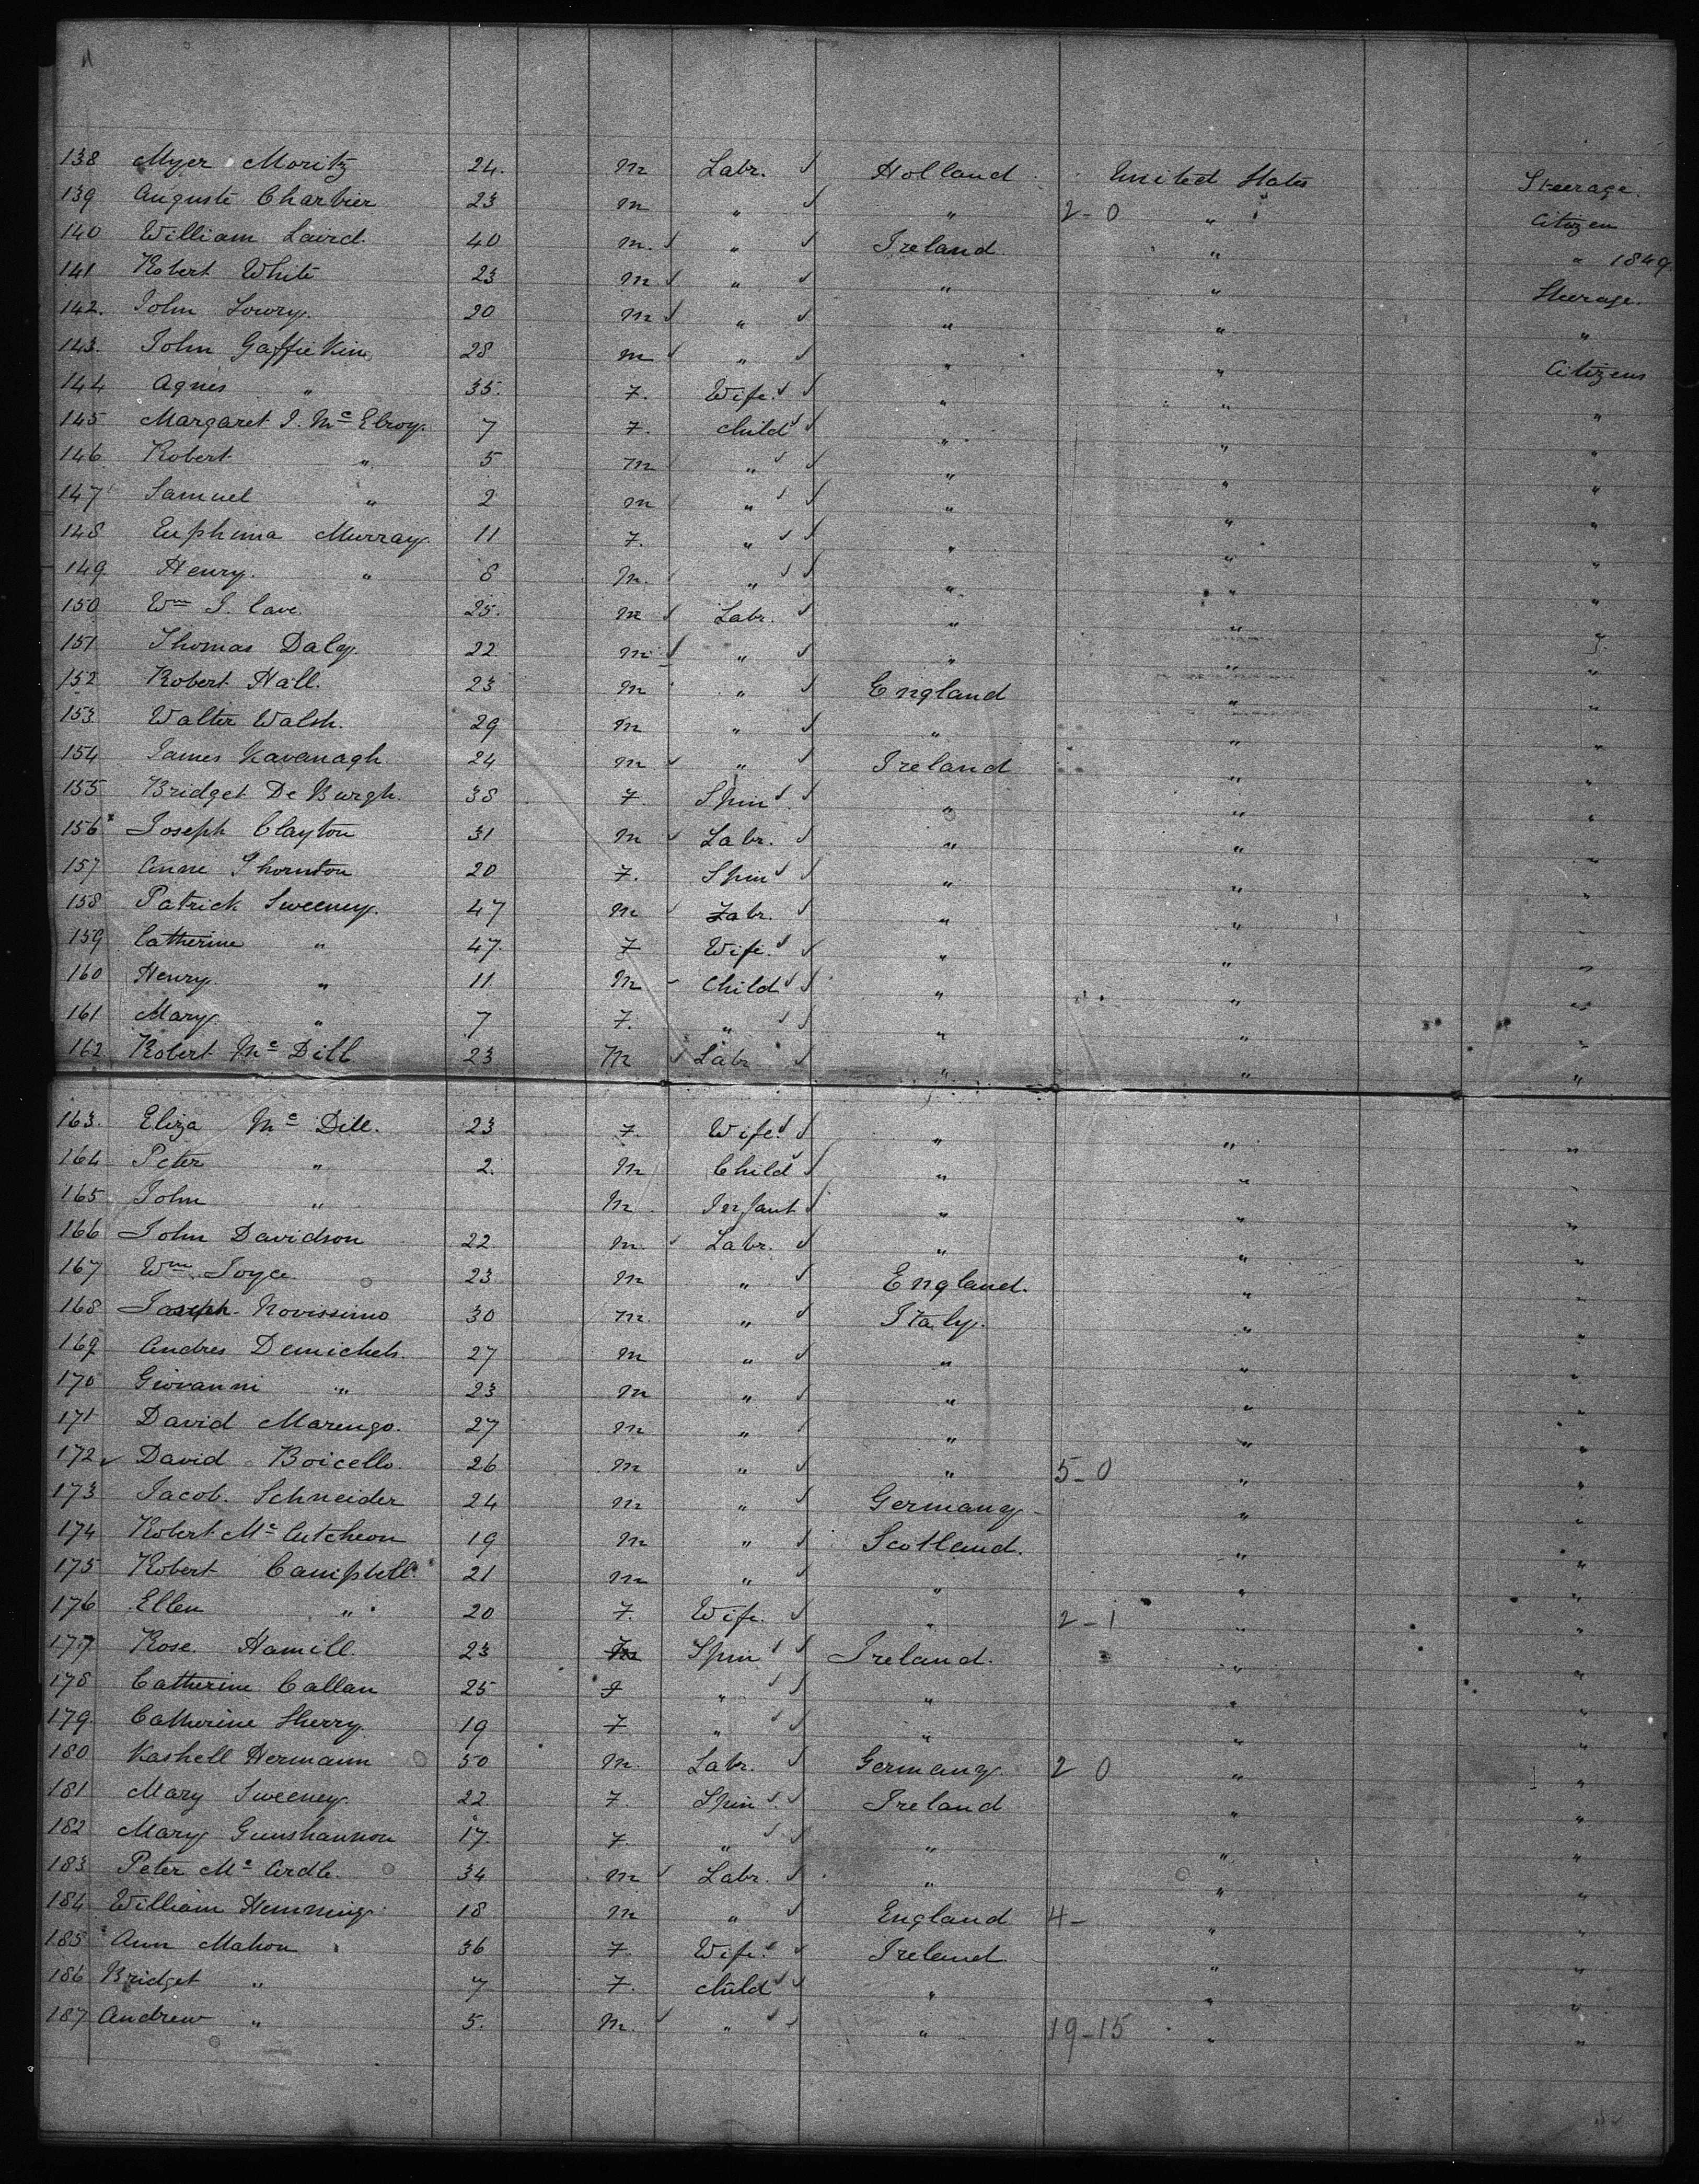 138 Myer Moritz 24. m Labr. Holland United States Steerage.
139 Auguste Charbier 23 m " " 2-0 " Citizen
140 William Laird. 40 m. " Ireland " " 1849
141 Robert White 23 m " " " Steerage.
142. John Lowry. 20 m " " " "
143. John Gaffiekin 28 m " " " Citizens
144 Agnes " 35. F. Wife. " " "
145 Margaret J. Mc Elroy. 7 F. Child " " "
146 Robert " 5 m " " " "
147 Samuel " 2 m " " " "
148 Euphima Murray. 11 F. " " " "
149 Henry. " 8 m. " " " "
150 Wm J. Cave. 25. m Labr. " "
151 Thomas Daly. 22. m " " " "
152 Robert Hall. 23 m " England " "
153 Walter Walsh. 29 m " " " "
154 James Kavanagh 24 m " Ireland " "
155 Bridget De Burgh. 38 F. Spin " " "
156 Joseph Clayton 31 m Labr. " " "
157 Anne Thornton 20 F. Spin " " "
158 Patrick Sweeney. 47 m Labr. " " "
159 Catherine " 47. F Wife. " " "
160 Henry. " 11. m Child " " "
161 Mary. " 7 F. " " " "
162 Robert Mc Dill 23 m Labr " " "
163. Eliza Mc Dill. 23 F. Wife. " " "
164 Peter " 2. m Child " " "
165 John " m Infant " " "
166 John Davidson 22. m. Labr. " " "
167 Wm Joyce 23 m " England. " "
168 Joseph Novissimo 30 m. " Italy. " "
169 Andres Demichels. 27 m " " " "
170 Giovanni " 23 m " " " "
171 David Marengo. 27 m " " " "
172 David Boicello. 26 m " " 5-0 " "
173 Jacob. Schneider 24 m " Germany " "
174 Robert Mc Cutcheon 19 m " Scotland. " "
175 Robert Campbell. 21 m " " " "
176 Ellen " 20 F. Wife. " 2-1 " "
177 Rose. Hamill. 23 Spin Ireland. " "
178 Catherine Callan 25 F " " " "
179. Catherine Sherry. 19 F " " " "
180 Kashell Hermann 50 m. Labr. Germany. 2 0 " "
181 Mary Sweeney. 22 F. Spin. Ireland " "
182 Mary Gunshannon 17. F. " " " "
183 Peter Mc Ardle. 34 m Labr. " " "
184 William Hemming 18 m " England 4- " "
185 Ann Mahon 36 F Wife. Ireland " "
186 Bridget " 7 F. child " " "
187 Andrew " 5. m. " " 19-15 " "